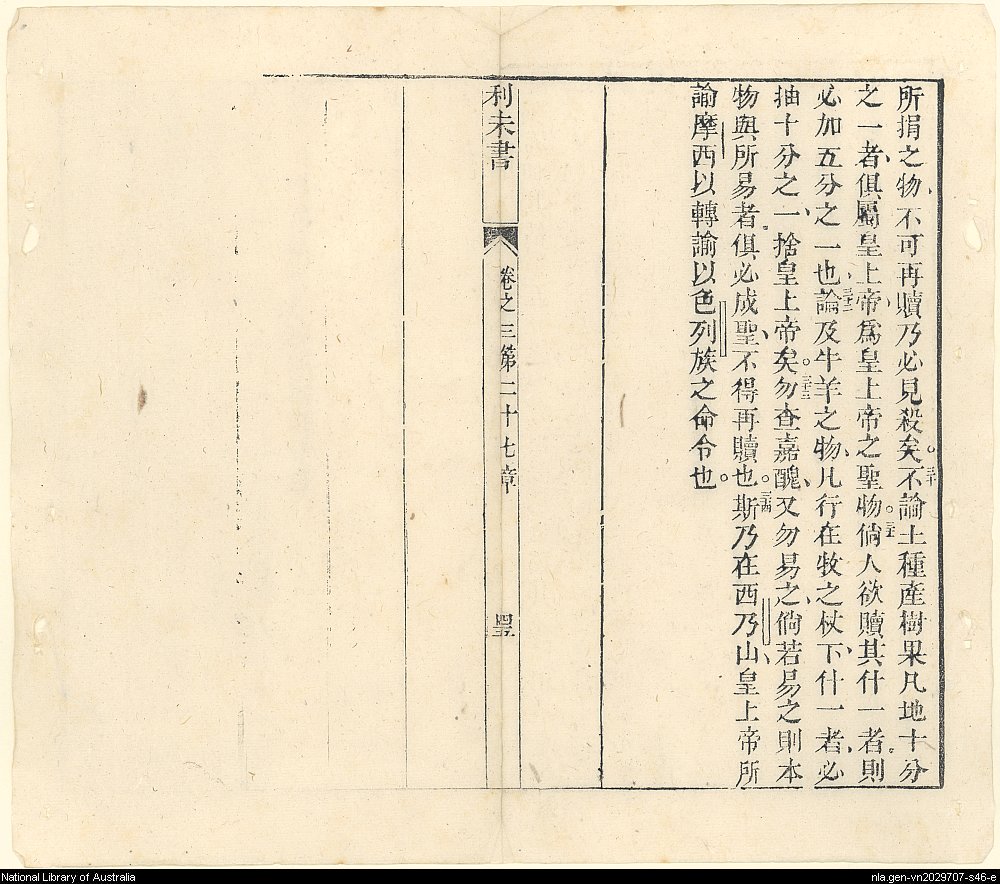 所捐之物、不可再贖乃必見殺矣。三十不論土種產樹果凡地十分
之一者、俱屬皇上帝、爲皇上帝之聖物。三一倘人欲贖其什一者、則
必加五分之一也、三二論及牛羊之物、凡行在牧之杖下、什一者、必
抽十分之一、捨皇上帝矣。三三勿查嘉醜、又勿易之、倘若易之、則本
物與所易者、俱必成聖、不得再贖也。三四斯乃在西乃山、皇上帝所
諭摩西以轉諭以色列族之命令也。
利未書
卷之三第二十七章
National Library of Australia
nla.gen-vn2029707-s46-e